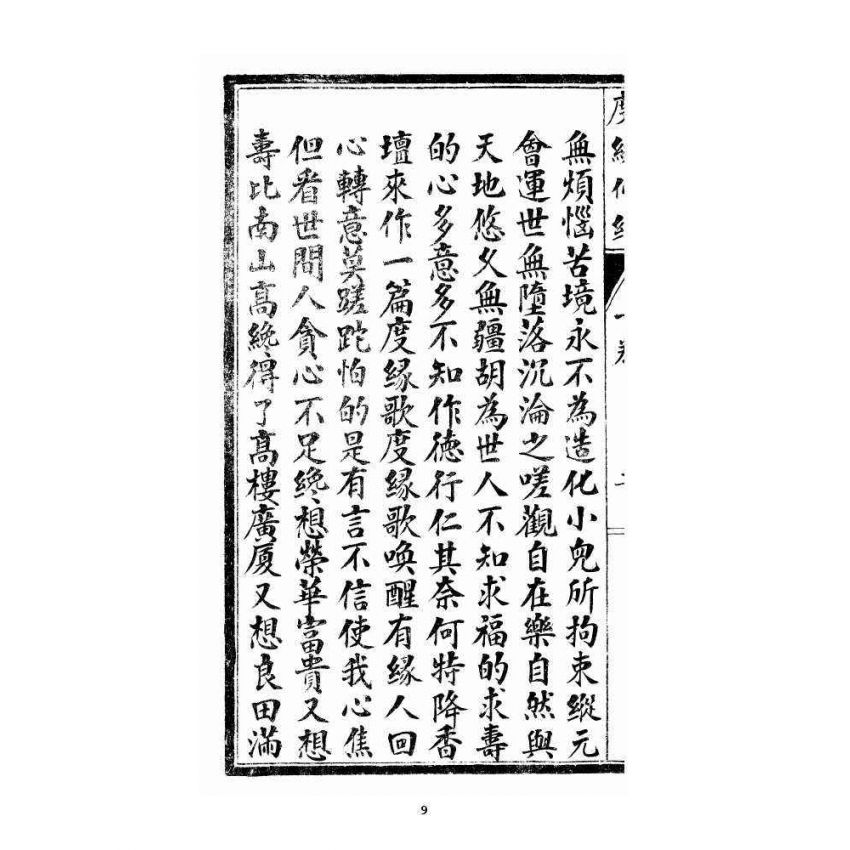 無煩惱苦境永不為造化小兒所拘束縱元
會運世無墮落沉淪之嗟觀自在樂自然與
天地悠久無疆胡為世人不知求福的求壽
的心多意多不知作德行仁其奈何特降香
壇來作一篇度緣歌度緣歌喚醒有緣人回
心轉意莫蹉跎怕的是有言不信使我心焦
但看世間人貪心不足纔想榮華富貴又想
壽比南山高纔得了高樓廣厦又想良田滿
9